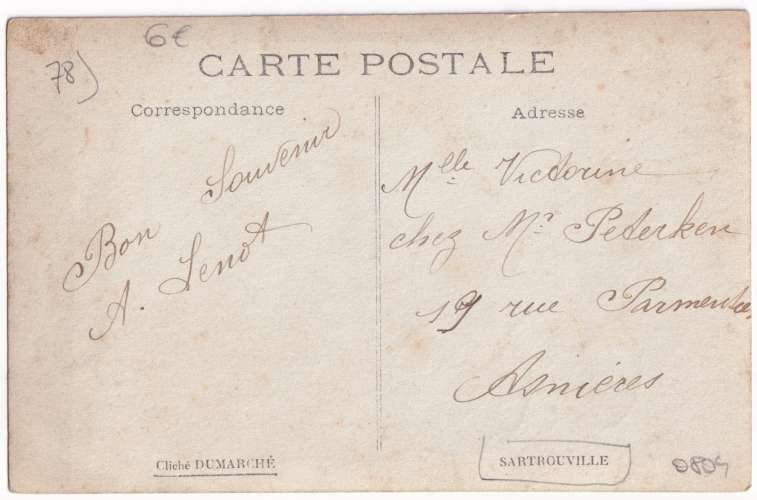 6€
78)
CARTE POSTALE
Correspondance
Bon Souvenir
A. Lenot
Adresse
Mlle Victorine
chez Mr Peterken
19 rue Parmentier
Asnières
Cliché DUMARCHÉ
SARTROUVILLE
0804